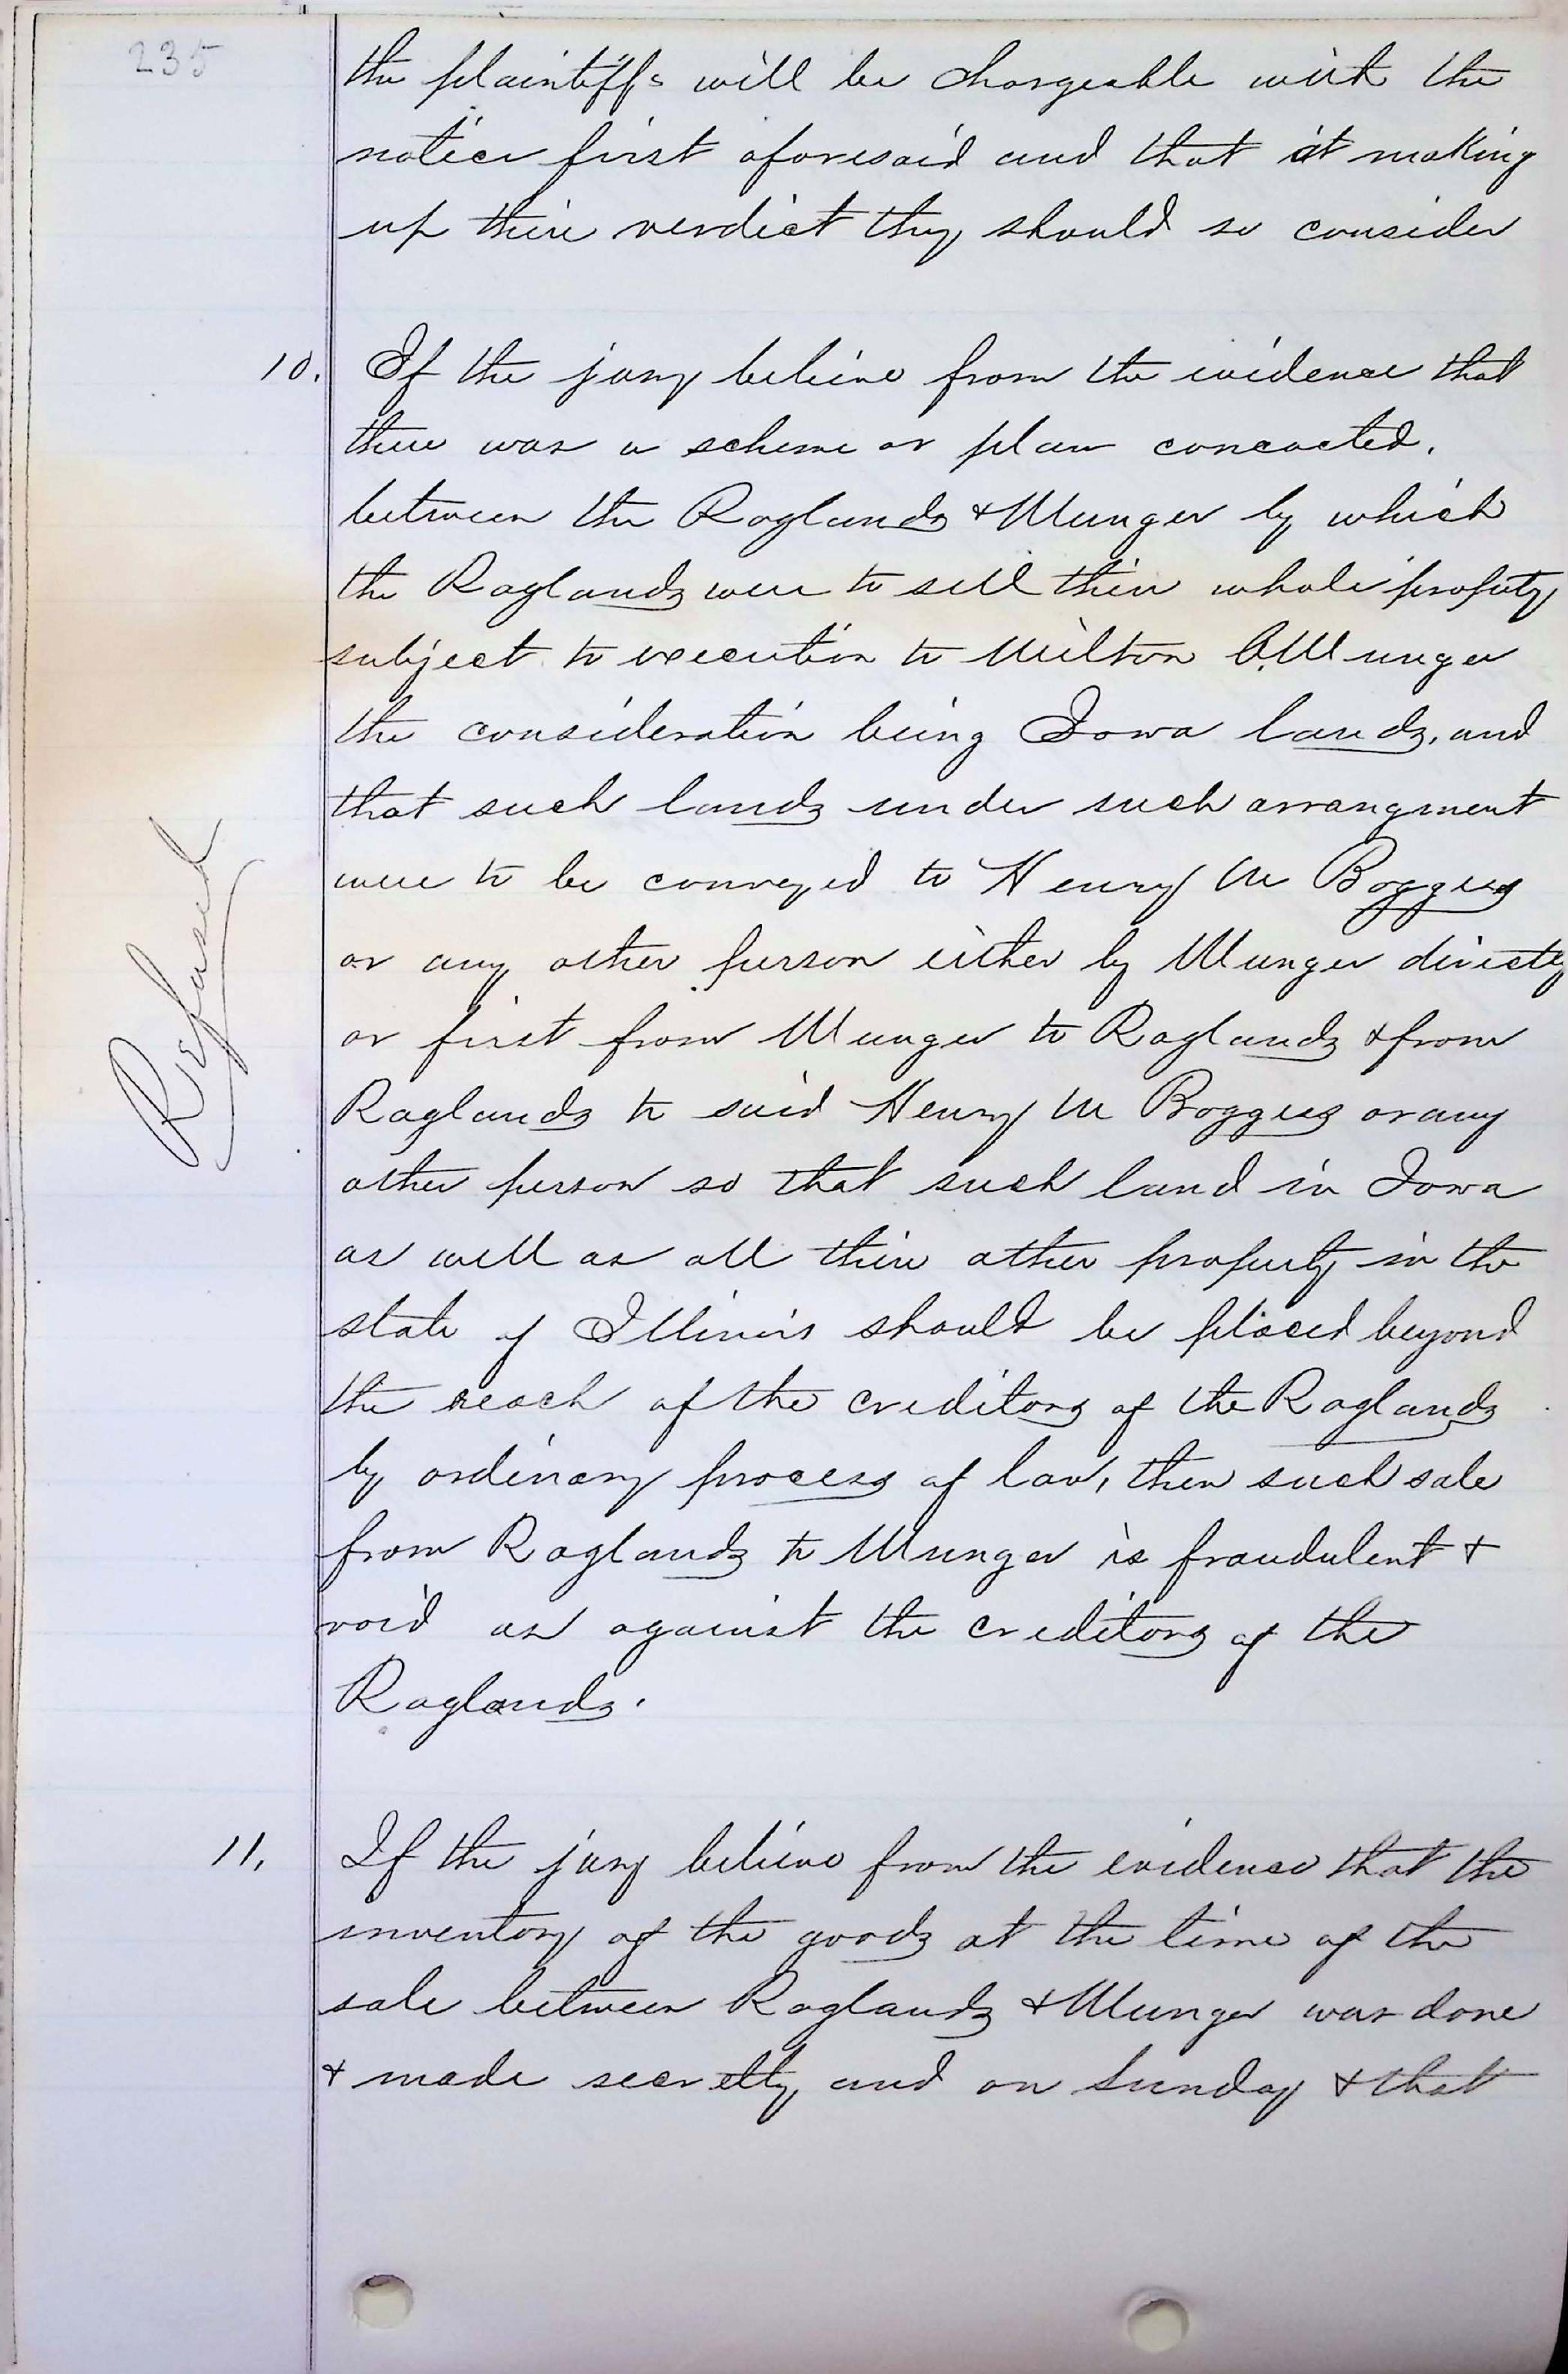 235
the plaintiffs will be chargeable with the
notice first aforesaid and that it making
up their verdict they should so consider
10. If the jury believe from the evidence that
there was a scheme or plan concocted.
between the Raglands & Munger by which
the Raglands were to sell their whole property
subject to execution to Milton C. Munger
the consideration being Iowa lands, and
that such lands under such arrangment
were to be conveyed to Henry M Boggess
or any other person either by Munger directly
or first from Munger to Raglands & from
Raglands to said Henry M Boggess or any
other person so that such land in Iowa
as well as all their other property in the
state of Illinois should be placed beyond
the reach of the creditors of the Raglands
by ordinary process of law, then such sale
from Raglands to Munger is fraudulent &
void as against the creditors of the
Raglands.
Refused
11. If the jury believe from the evidence that the
inventory of the goods at the time of the
sale between Raglands & Munger was done
& made secretly and on Sunday & that